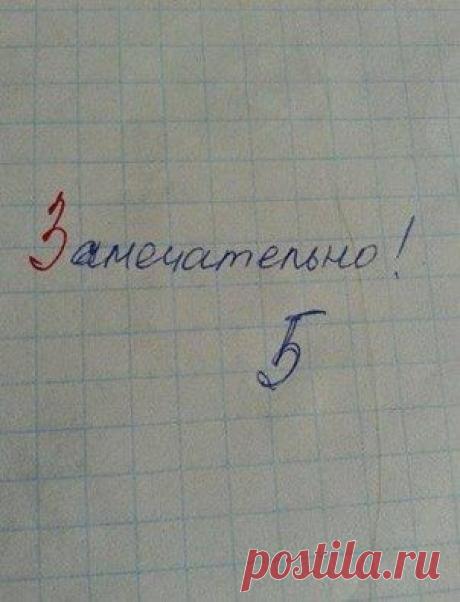 Замечательно!
5
postila.ru